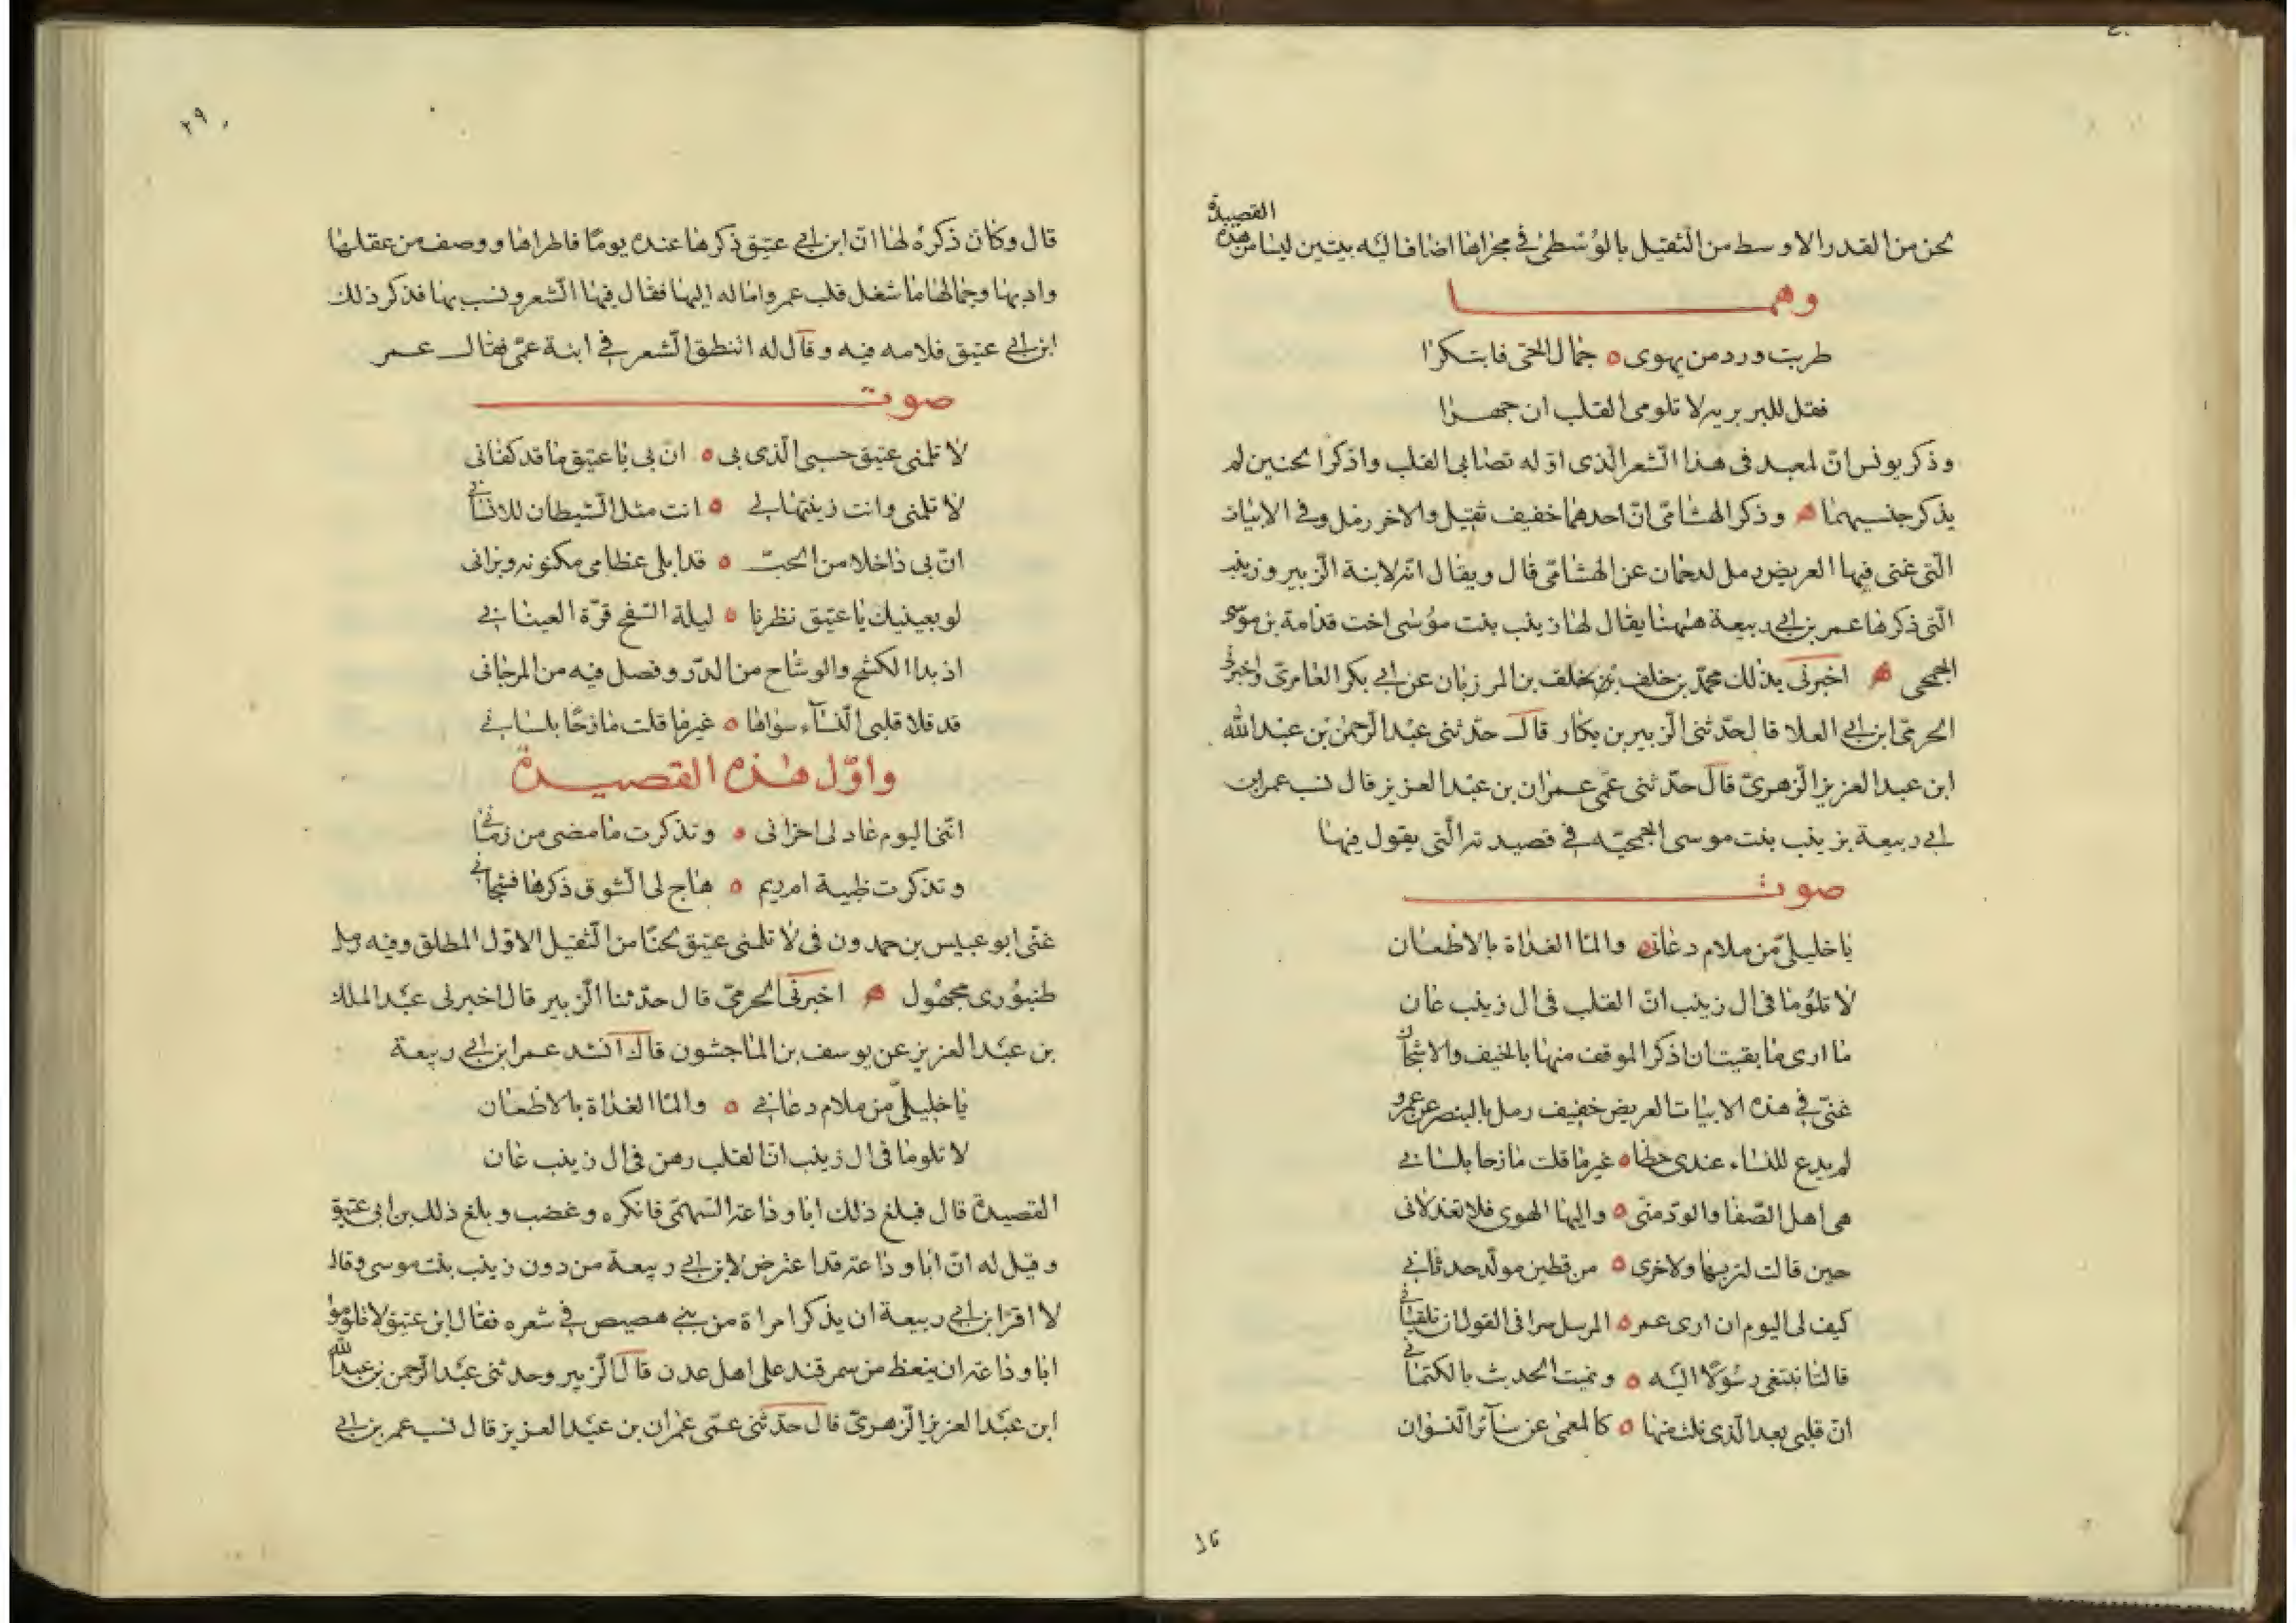 القصيدة
لحن من القدر الاوسط من الثقيل بالوسطى في مجراها اضاف اليه بيتين ليسا من هذه
وهما
طربت ورد من يهوى ٥ جمال الحي فابتكرا
فقل للبربريه لا تلومى القلب ان جهرا
وذكر يونس انّ لمعبد فى هذا الشعر الذى اوله تصابى القلب واذكرا لحنين لم
يذكر جنسيهما ۞ وذكر الهشامى انّ احدهما خفيف ثقيل والاخر رمل وفي الابيات
التى غنى فيها الغريض رمل لدحمان عن الهشامى قال ويقال انه لابنة الزبير وزينب
التى ذكرها عمر بن ابي ربيعة ههنا يقال لها زينب بنت موسى اخت قدامة بن موسى
الجمحى ۞ اخبرنى بذلك محمد بن خلف بن المرزبان عن ابي بكر العامرى واخبرنى
الحرمى ابن ابي العلا قال حدّثنى الزبير بن بكار قال حدثنى عبد الرحمن بن عبد الله
ابن عبد العزيز الزهرى قال حدثنى عمى عمران بن عبد العزيز قال نسب عمر ابن
ابي ربيعة بزينب بنت موسى الجمحيه في قصيدته التى يقول فيها
صوت
يا خليلىّ من ملام دعانى ٥ والمّا الغداة بالاظعان
لا تلوما فى ال زينب انّ القلب فى ال زينب عان
ما ارى ما بقيت ان اذكر الموقف منها بالخيف والاشجان
غنّى في هذه الابيات الغريض خفيف رمل بالبنصر عن عمرو
لم يدع للنساء عندى حظا ٥ غير ما قلت مازحا بلساني
هى اهل الصّفا والودّ منى ٥ واليها الهوى فلا تعذلانى
حين قالت لتربها ولاخرى ٥ من قطين مولّد حدثاني
كيف لى اليوم ان ارى عمر ٥ المرسل سرا فى القول ان تلقيانى
قالتا نبتغى رسولا اليه ٥ ونميت الحديث بالكتمانى
انّ قلبى بعد الذى نلت منها ٥ كالمعمى عن سآئر النسوان
٢٩
قال وكان ذكره لها انّ ابن ابي عتيق ذكرها عنده يومًا فاطراها ووصف من عقلها
وادبها وجمالها ما شغل قلب عمر واماله اليها فقال فيها الشعر ونسب بها فذكر ذلك
ابن ابي عتيق فلامه فيه وقال له اتنطق الشعر في ابنة عمّى فقال عمر
صوت
لا تلمنى عتيق حسبى الذى بى ٥ انّ بى يا عتيق ما قد كفانى
لا تلمنى وانت زينتها لي ٥ انت مثل الشيطان للانسانى
انّ بى داخلا من الحبّ ٥ قد ابلى عظامى مكنونه وبرانى
لو بعينيك يا عتيق نظرنا ٥ ليلة السّفح قرّة العيناني
اذ بدا الكشح والوشاح من الدرّ وفصل فيه من المرجانى
قد قلا قلبى النسآء سواها ٥ غير ما قلت مازحًا بلساني
واوّل هذه القصيدة
انّنى اليوم عاد لى احزانى ٥ وتذكرت ما مضى من زمانى
وتذكرت ظبية ام ريم ٥ هاج لى الشوق ذكرها فشجانى
غنّى ابو عبيس بن حمدون فى لا تلمنى عتيق لحنًا من الثقيل الاوّل المطلق وفيه رمل
طنبورى مجهول ۞ اخبرنى الحرمى قال حدّثنا الزبير قال اخبرنى عبد الملك
بن عبد العزيز عن يوسف بن الماجشون قال انشد عمر ابن ابي ربيعة
يا خليلىّ من ملام دعاني ٥ والمّا الغداة بالاظعان
لا تلوما فى ال زينب انّ القلب رهن فى ال زينب عان
القصيدة قال فبلغ ذلك ابا وداعة السّهمى فانكره وغضب وبلغ ذلك بن ابى عتيق
وقيل له انّ ابا وداعة قد اعترض لابن ابي ربيعة من دون زينب بنت موسى وقال
لا اقرّ ابن ابي ربيعة ان يذكر امراة من بني هصيص في شعره فقال ابن عتيق لا تلوموا
ابا وداعة ان ينعظ من سمرقند على اهل عدن قال الزبير وحدثنى عبد الرحمن بن عبد الله
ابن عبد العزيز الزهرىّ قال حدّثنى عمّى عمران بن عبد العزيز قال نسب عمر بن ابي